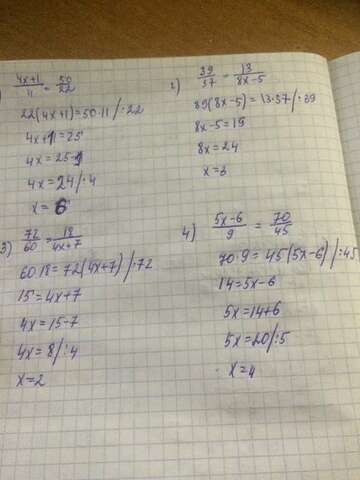 ) (4x+1)/11 = 50/22
22(4x+1)=50·11/:22
4x+1=25
4x=25-1
4x=24/:4
x=6
2) 39/57 = 13/(8x-5)
39(8x-5)=13·57/:39
8x-5=19
8x=24
x=3
3) 72/60 = 18/(4x+7)
60·18=72(4x+7)/:72
15=4x+7
4x=15-7
4x=8/:4
x=2
4) (5x-6)/9 = 70/45
70·9=45(5x-6)/:45
14=5x-6
5x=14+6
5x=20/:5
x=4